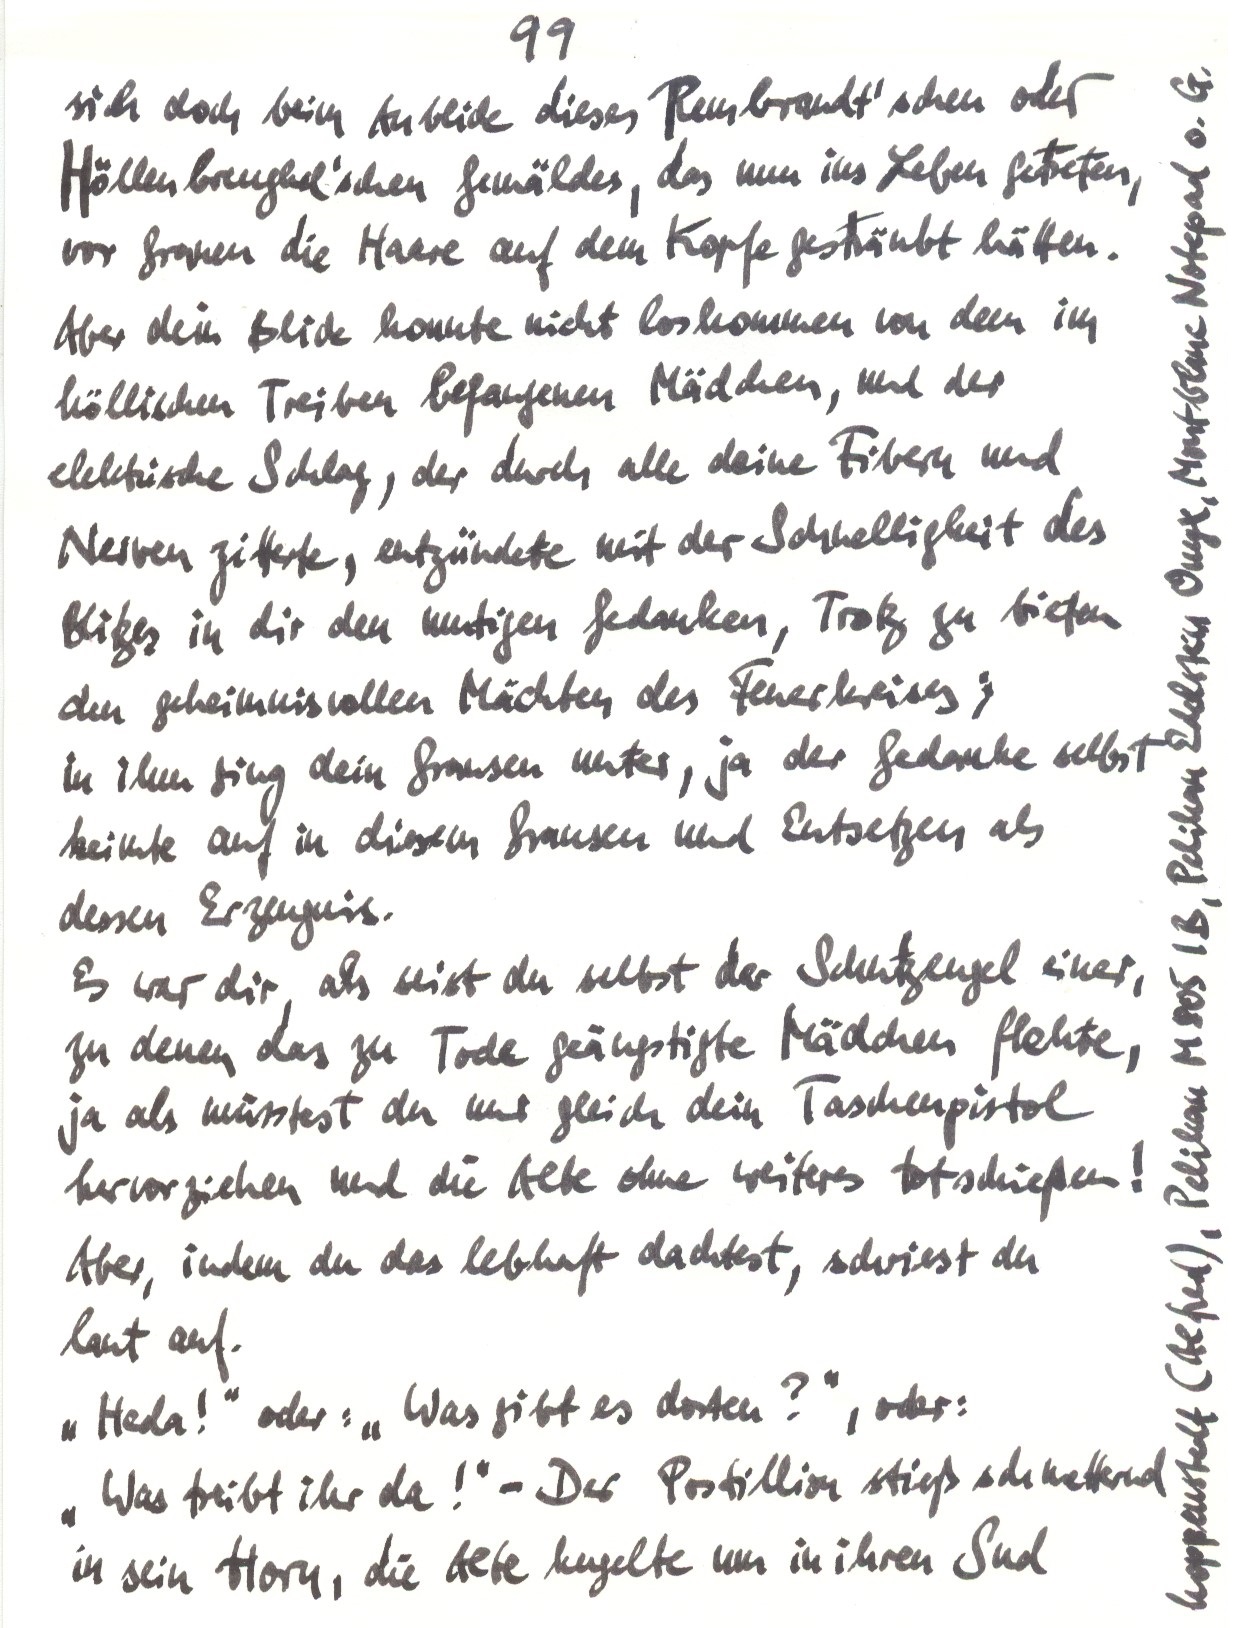 99
sich doch beim Anblick dieses Rembrandt'schen oder
Höllenbreughel'schen Gemäldes, das nun ins Leben getreten,
vor Grauen die Haare auf dem Kopfe gesträubt hätten.
Aber dein Blick konnte nicht loskommen von dem im
höllischen Treiben befangenen Mädchen, und der
elektrische Schlag, der durch alle deine Fibern und
Nerven zitterte, entzündete mit der Schnelligkeit des
Blitzes in dir den mutigen Gedanken, Trotz zu bieten
den geheimnisvollen Mächten des Feuerkreises;
in ihm ging dein Grausen unter, ja der Gedanke selbst
keimte auf in diesem Grausen und Entsetzen als
dessen Erzeugnis.
Es war dir, als seist du selbst der Schutzengel einer,
zu denen das zu Tode geängstigte Mädchen flehte,
ja als müsstest du nur gleich dein Taschenpistol
hervorziehen und die Alte ohne weiteres totschießen!
Aber, indem du das lebhaft dachtest, schriest du
laut auf.
„Heda!“ oder: „Was gibt es dorten?“, oder:
„Was treibt ihr da!“ - Der Postillion stieß schmetternd
in sein Horn, die Alte kugelte um in ihren Sud
hoppenstedt (Alfred), Pelikan M805 IB, Pelikan Edelstein Onyx, Montblanc Notepad o. G.